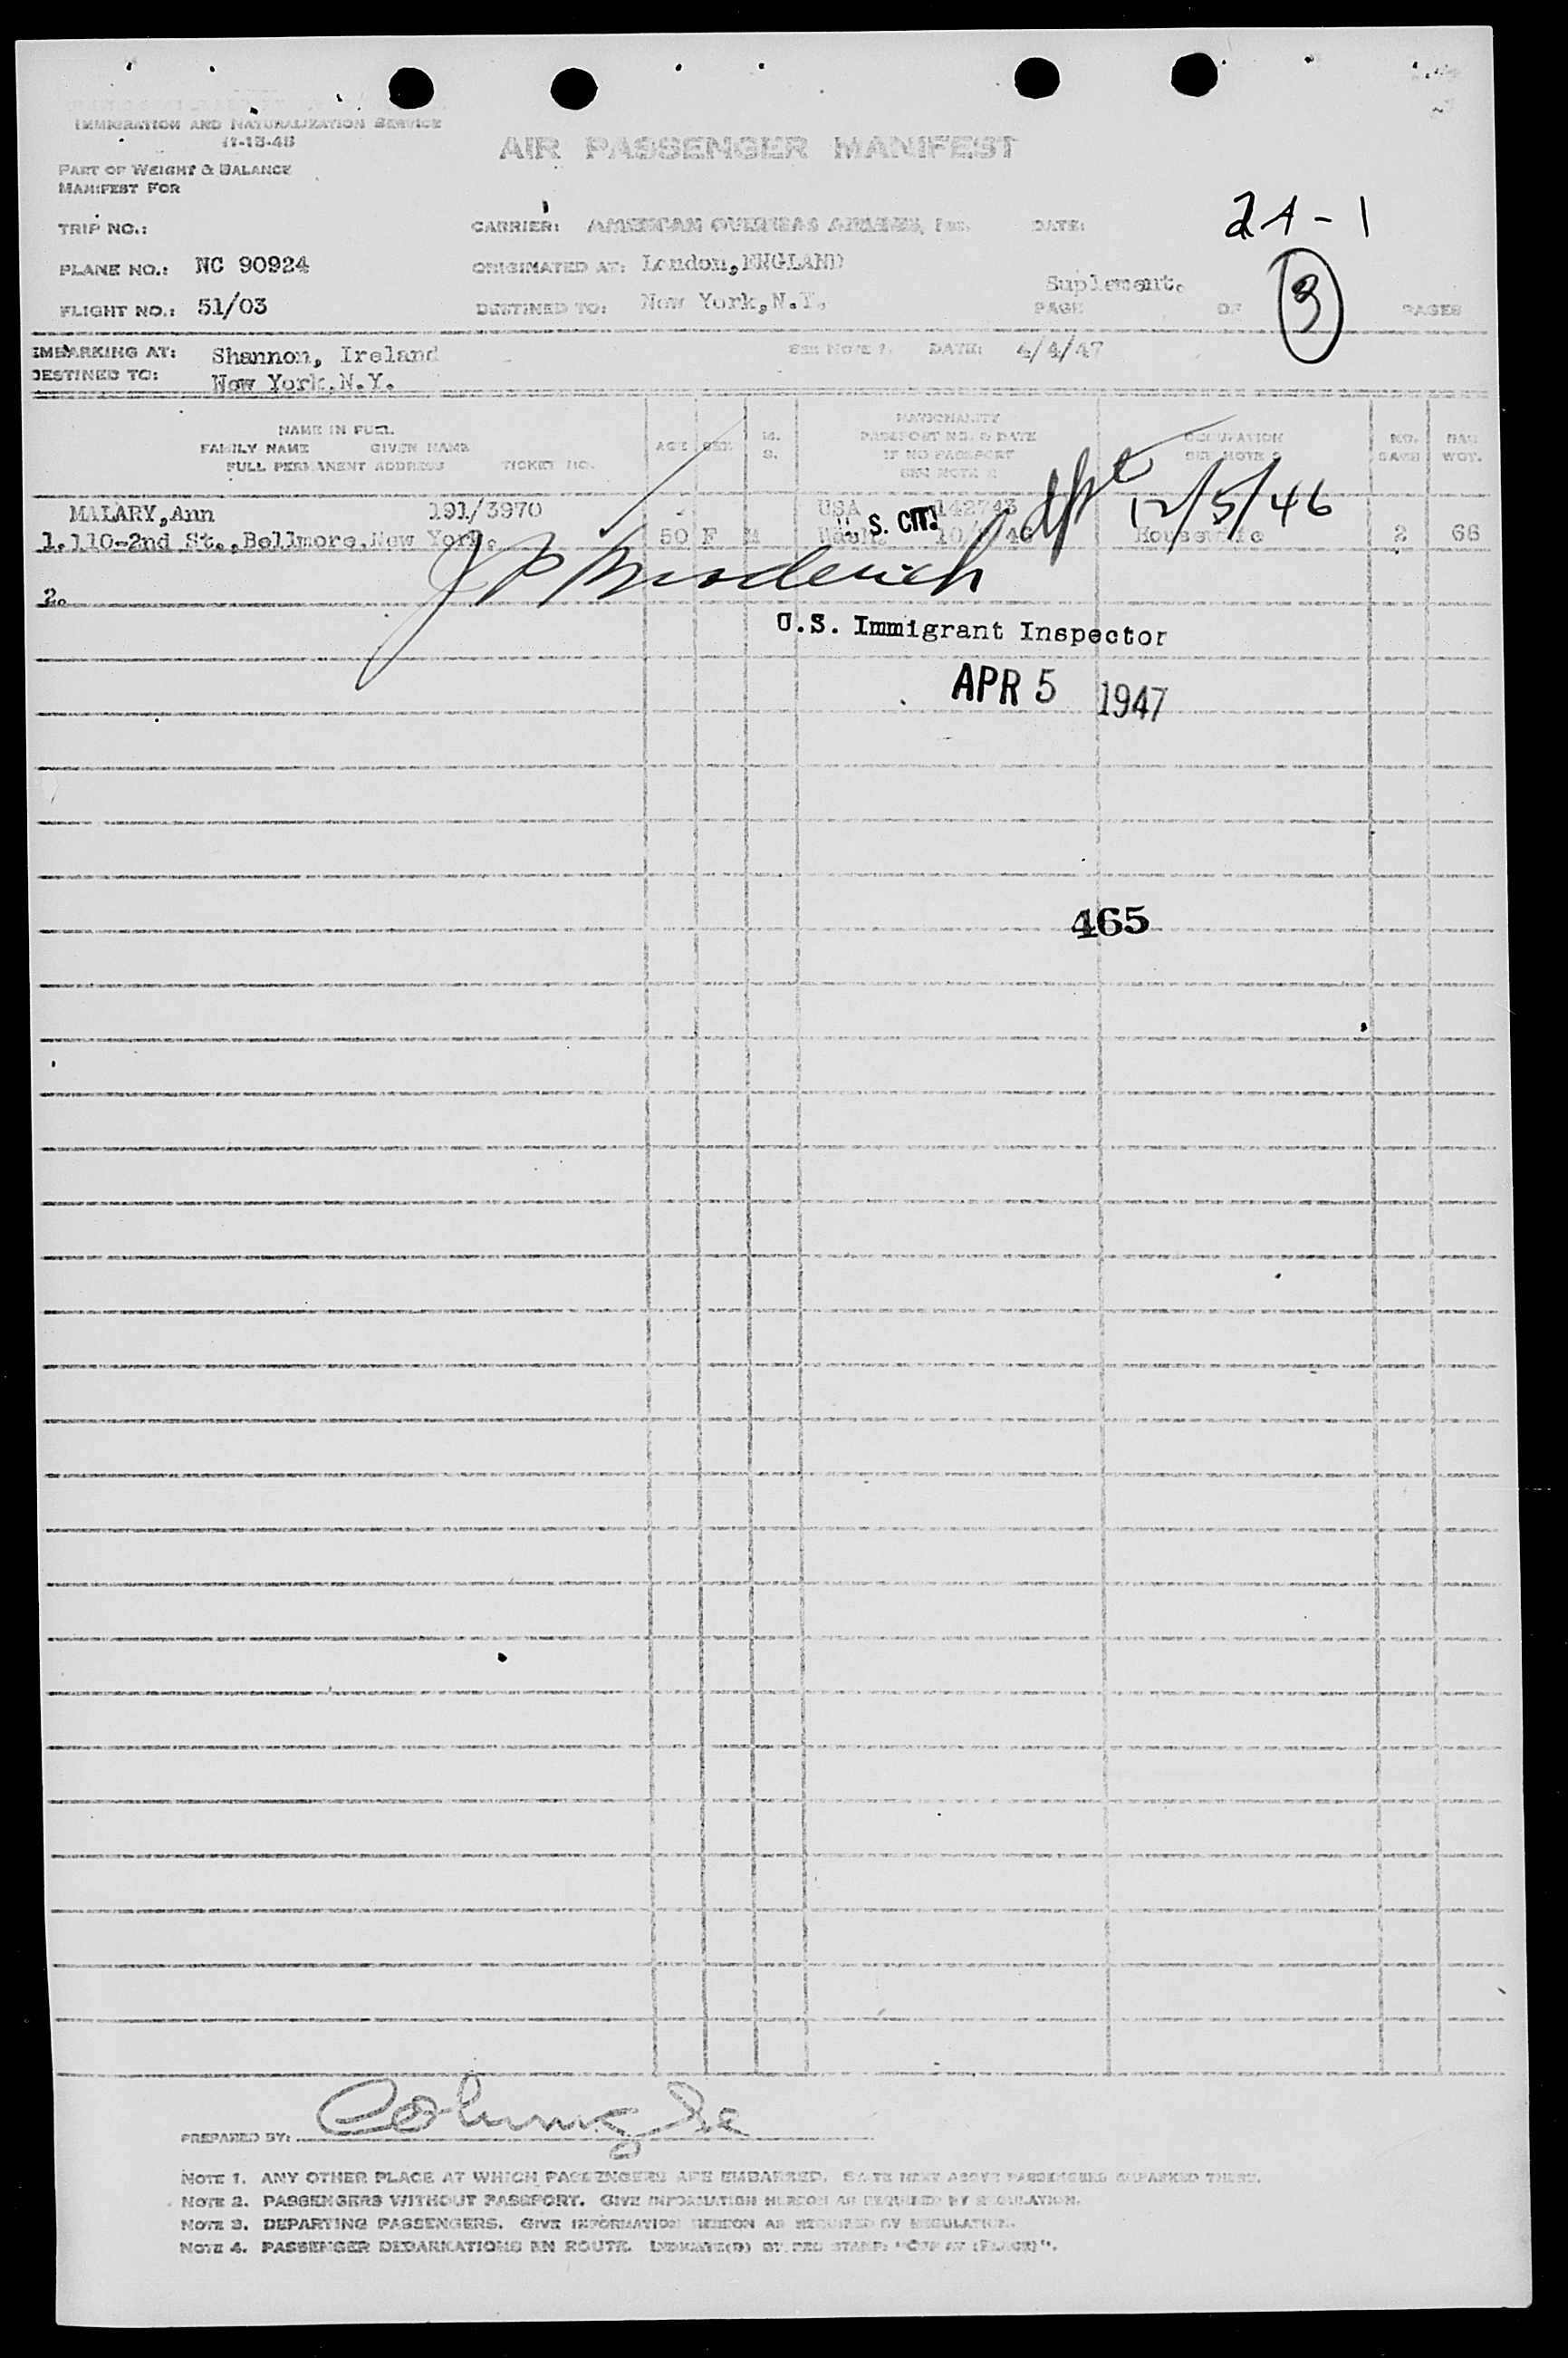 IMMIGRATION AND NATURALIZATION SERVICE
11-18-46
AIR PASSENGER MANIFEST
PART OF WEIGHT & BALANCE
MANIFEST FOR
21-1
TRIP NO.: CARRIER: AMERICAN OVERSEAS AIRLINES, INC. DATE:
PLANE NO.: NC 90924 ORIGINATED AT: London, ENGLAND
Suplement.
FLIGHT NO.: 51/03 DESTINED TO: New York, N.Y. PAGE OF 3 PAGES
EMBARKING AT: Shannon, Ireland SEE NOTE 1. DATE: 4/4/47
DESTINED TO: New York, N.Y.
NAME IN FULL
FAMILY NAME GIVEN NAME
FULL PERMANENT ADDRESS TICKET NO.
AGE SEX M. S.
NATIONALITY
PASSPORT NO. & DATE
IF NO PASSPORT
SEE NOTE 2
OCCUPATION
SEE NOTE
NO. BAGS
BAG. WGT.
MALARY, Ann 191/3970 USA 142743
U. S. CIT. 12/5/46
1. 110-2nd St., Bellmore, New York. 50 F M Wash. Housewife 2 66
2.
U.S. Immigrant Inspector
APR 5 1947
465
PREPARED BY:
NOTE 1. ANY OTHER PLACE AT WHICH PASSENGERS ARE EMBARKED. STATE NEXT ABOVE PASSENGERS EMBARKED THERE.
NOTE 2. PASSENGERS WITHOUT PASSPORT. GIVE INFORMATION HEREON AS REQUIRED BY REGULATION.
NOTE 3. DEPARTING PASSENGERS. GIVE INFORMATION HEREON AS REQUIRED BY REGULATION.
NOTE 4. PASSENGER DEBARKATIONS EN ROUTE. INDICATE(D) BY RED STAMP: "OFF AT (PLACE)".